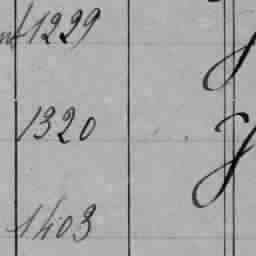 1229
1320
1403